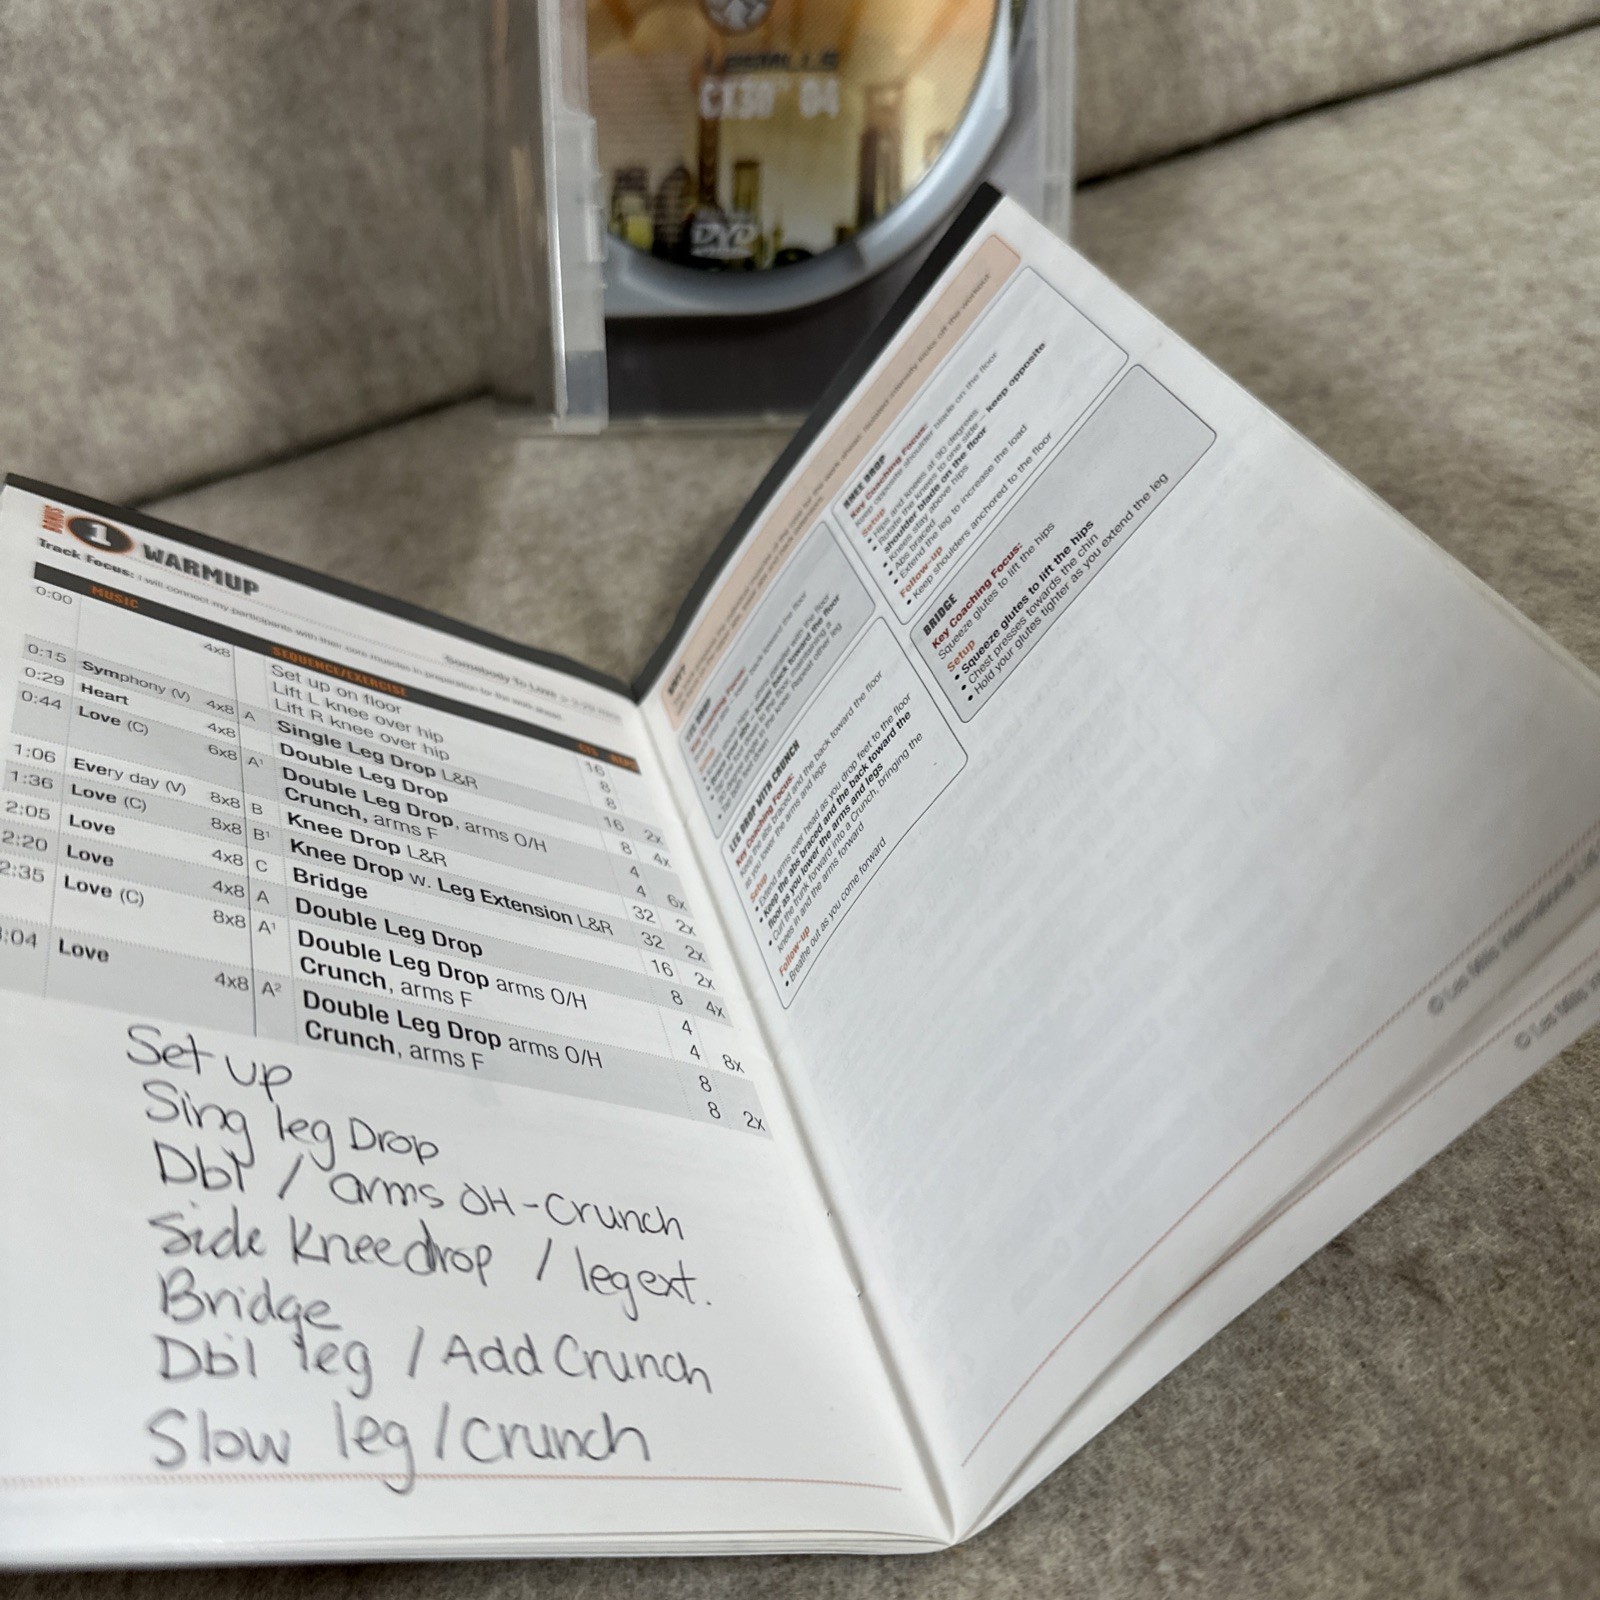 LESMILLS
CX30™ 04
DVD
BONUS
1 WARMUP
Somebody To Love
Track Focus: I will connect my participants with their core muscles in preparation for the work ahead
MUSIC SEQUENCE/EXERCISE CTS REPS
0:00 4x8 Set up on floor 16
Lift L knee over hip 8
Lift R knee over hip 8
0:15 Symphony (V) 4x8 A Single Leg Drop L&R 16 2x
0:29 Heart 4x8 Double Leg Drop 8 4x
0:44 Love (C) 6x8 A¹ Double Leg Drop, arms O/H 4
Crunch, arms F 4 6x
1:06 Every day (V) 8x8 B Knee Drop L&R 32 2x
1:36 Love (C) 8x8 B¹ Knee Drop w. Leg Extension L&R 32 2x
2:05 Love 4x8 C Bridge 16 2x
2:20 Love 4x8 A Double Leg Drop 8 4x
2:35 Love (C) 8x8 A¹ Double Leg Drop arms O/H 4
Crunch, arms F 4 8x
:04 Love 4x8 A² Double Leg Drop arms O/H 8
Crunch, arms F 8 2x
Set up
Sing leg Drop
Dbl / arms OH-Crunch
Side Kneedrop / leg ext.
Bridge
Dbl leg / Add Crunch
Slow leg / crunch
LEG DROP
LEG DROP WITH CRUNCH
Key Coaching Focus:
Keep the abs braced and the back toward the floor
as you lower the arms and legs
Setup
• Extend arms over head as you drop feet to the floor
• Keep the abs braced and the back toward the
floor as you lower the arms and legs
• Curl the trunk forward into a Crunch, bringing the
knees in and the arms forward
Follow-up
• Breathe out as you come forward
KNEE DROP
Key Coaching Focus:
Keep opposite shoulder blade on the floor
Setup
• Hips and knees at 90 degrees
• Rotate the knees to one side – keep opposite
shoulder blade on the floor
• Knees stay above hips
• Abs braced
• Extend the leg to increase the load
Follow-up
• Keep shoulders anchored to the floor
BRIDGE
Key Coaching Focus:
Squeeze glutes to lift the hips
Setup
• Squeeze glutes to lift the hips
• Chest presses towards the chin
• Hold your glutes tighter as you extend the leg
© Les Mills International Ltd
© Les Mills In